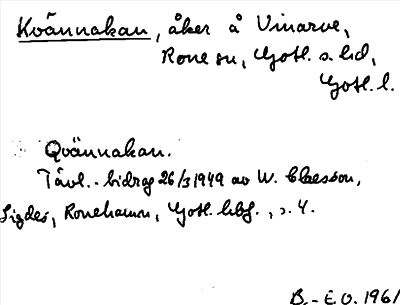 Kvännakan, åker å Vinarve,
Rone sn, Gotl. s. hd,
Gotl. l.
Qvännakan.
Tävl.-bidrag 26/3 1949 av W. Claesson,
Ligdes, Ronehamn, Gotl. hbf., s. 4.
B.-E.O. 1961